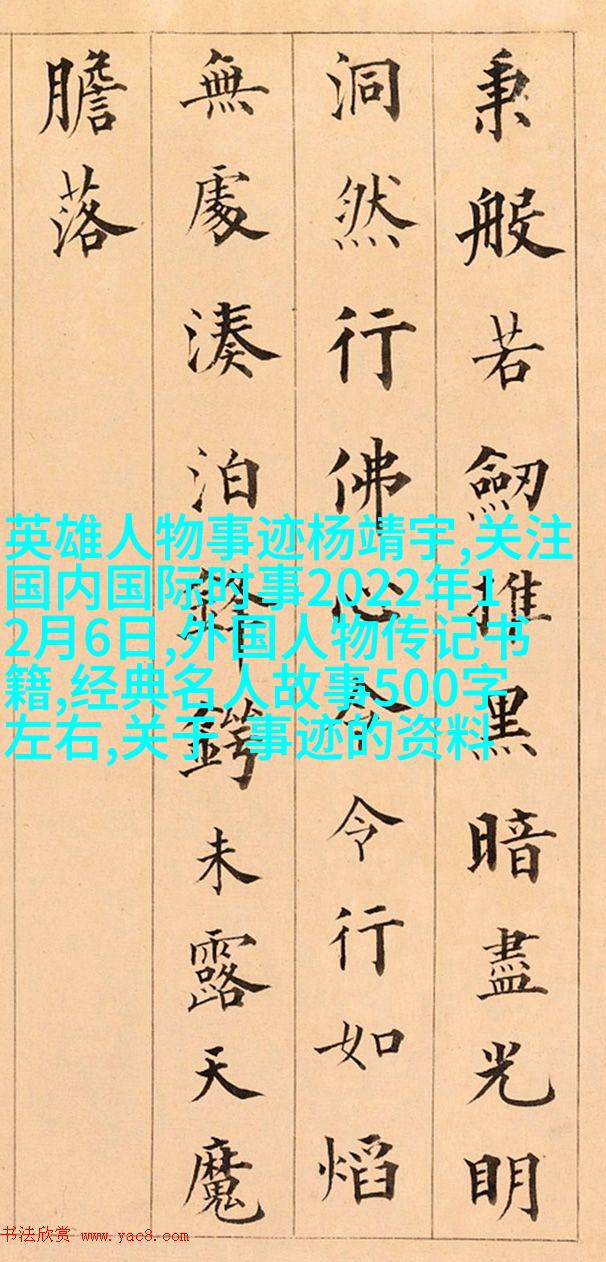 秉般若劒推黑暗盡光明
洞然行佛心令令行如熖
無處湊泊鋒鍔未露天魔
膽落
英雄人物事迹杨靖宇,关注
国内国际时事2022年1
2月6日,外国人物传记书
籍,经典名人故事500字
左右,关于 事迹的资料
书法欣赏 www.yac8.com